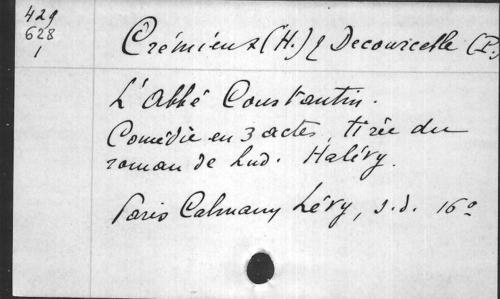 429
628
1
Crémieux (H.) & Decourcelle (P.)
L'Abbé Constantin.
Comédie en 3 actes, tirée du
roman de Lud. Halévy.
Paris Calmann Lévy, s.d. 16º